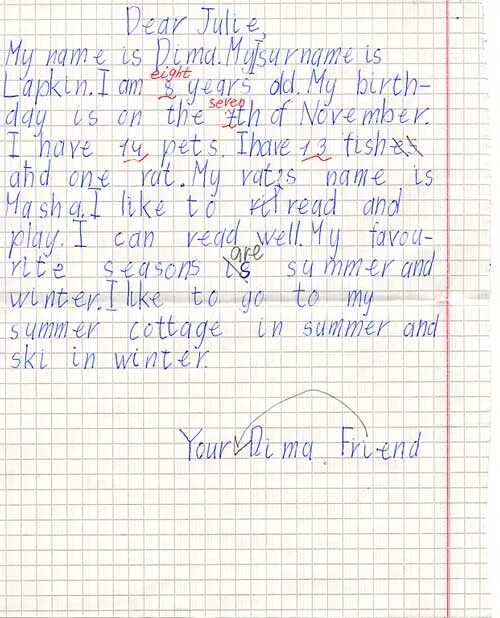 Dear Julie,
My name is Dima. My surname is
Lapkin. I am 8 eight years old. My birth-
day is on the 7th seven of November.
I have 14 pets. I have 13 fish
and one rat. My rat's name is
Masha. I like to read and
play. I can read well. My favou-
rite seasons is are summer and
winter. I like to go to my
summer cottage in summer and
ski in winter.
Your Dima Friend